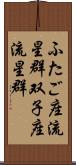 ふたご座流
星群双子座
流星群